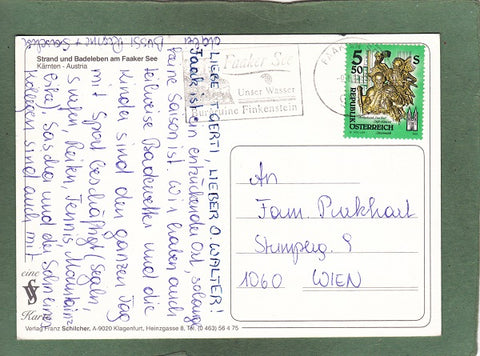 Strand und Badeleben am Faaker See
Kärnten - Austria
LIEBE T. GERTI, LIEBER O. WALTER!
Faak ist ein entzückender Ort, solange
keine Saison ist. Wir haben auch
teilweise Badewetter und die
Kinder sind den ganzen Tag
mit Sport beschäftigt (Segeln,
Surfen, Reiten, Tennis, Mountain
bike), Sascha und der Sohn eines
Kollegen sind auch mit
Bussi
eine
Karte
Verlag Franz Schilcher, A-9020 Klagenfurt, Heinzgasse 8, Tel. (0 463) 56 4 75
Faaker See
Unser Wasser
Finkenstein
FAAK
5 50
S
REPUBLIK
ÖSTERREICH
An
Fam. Purkhart
Stumperg. 9
1060 WIEN